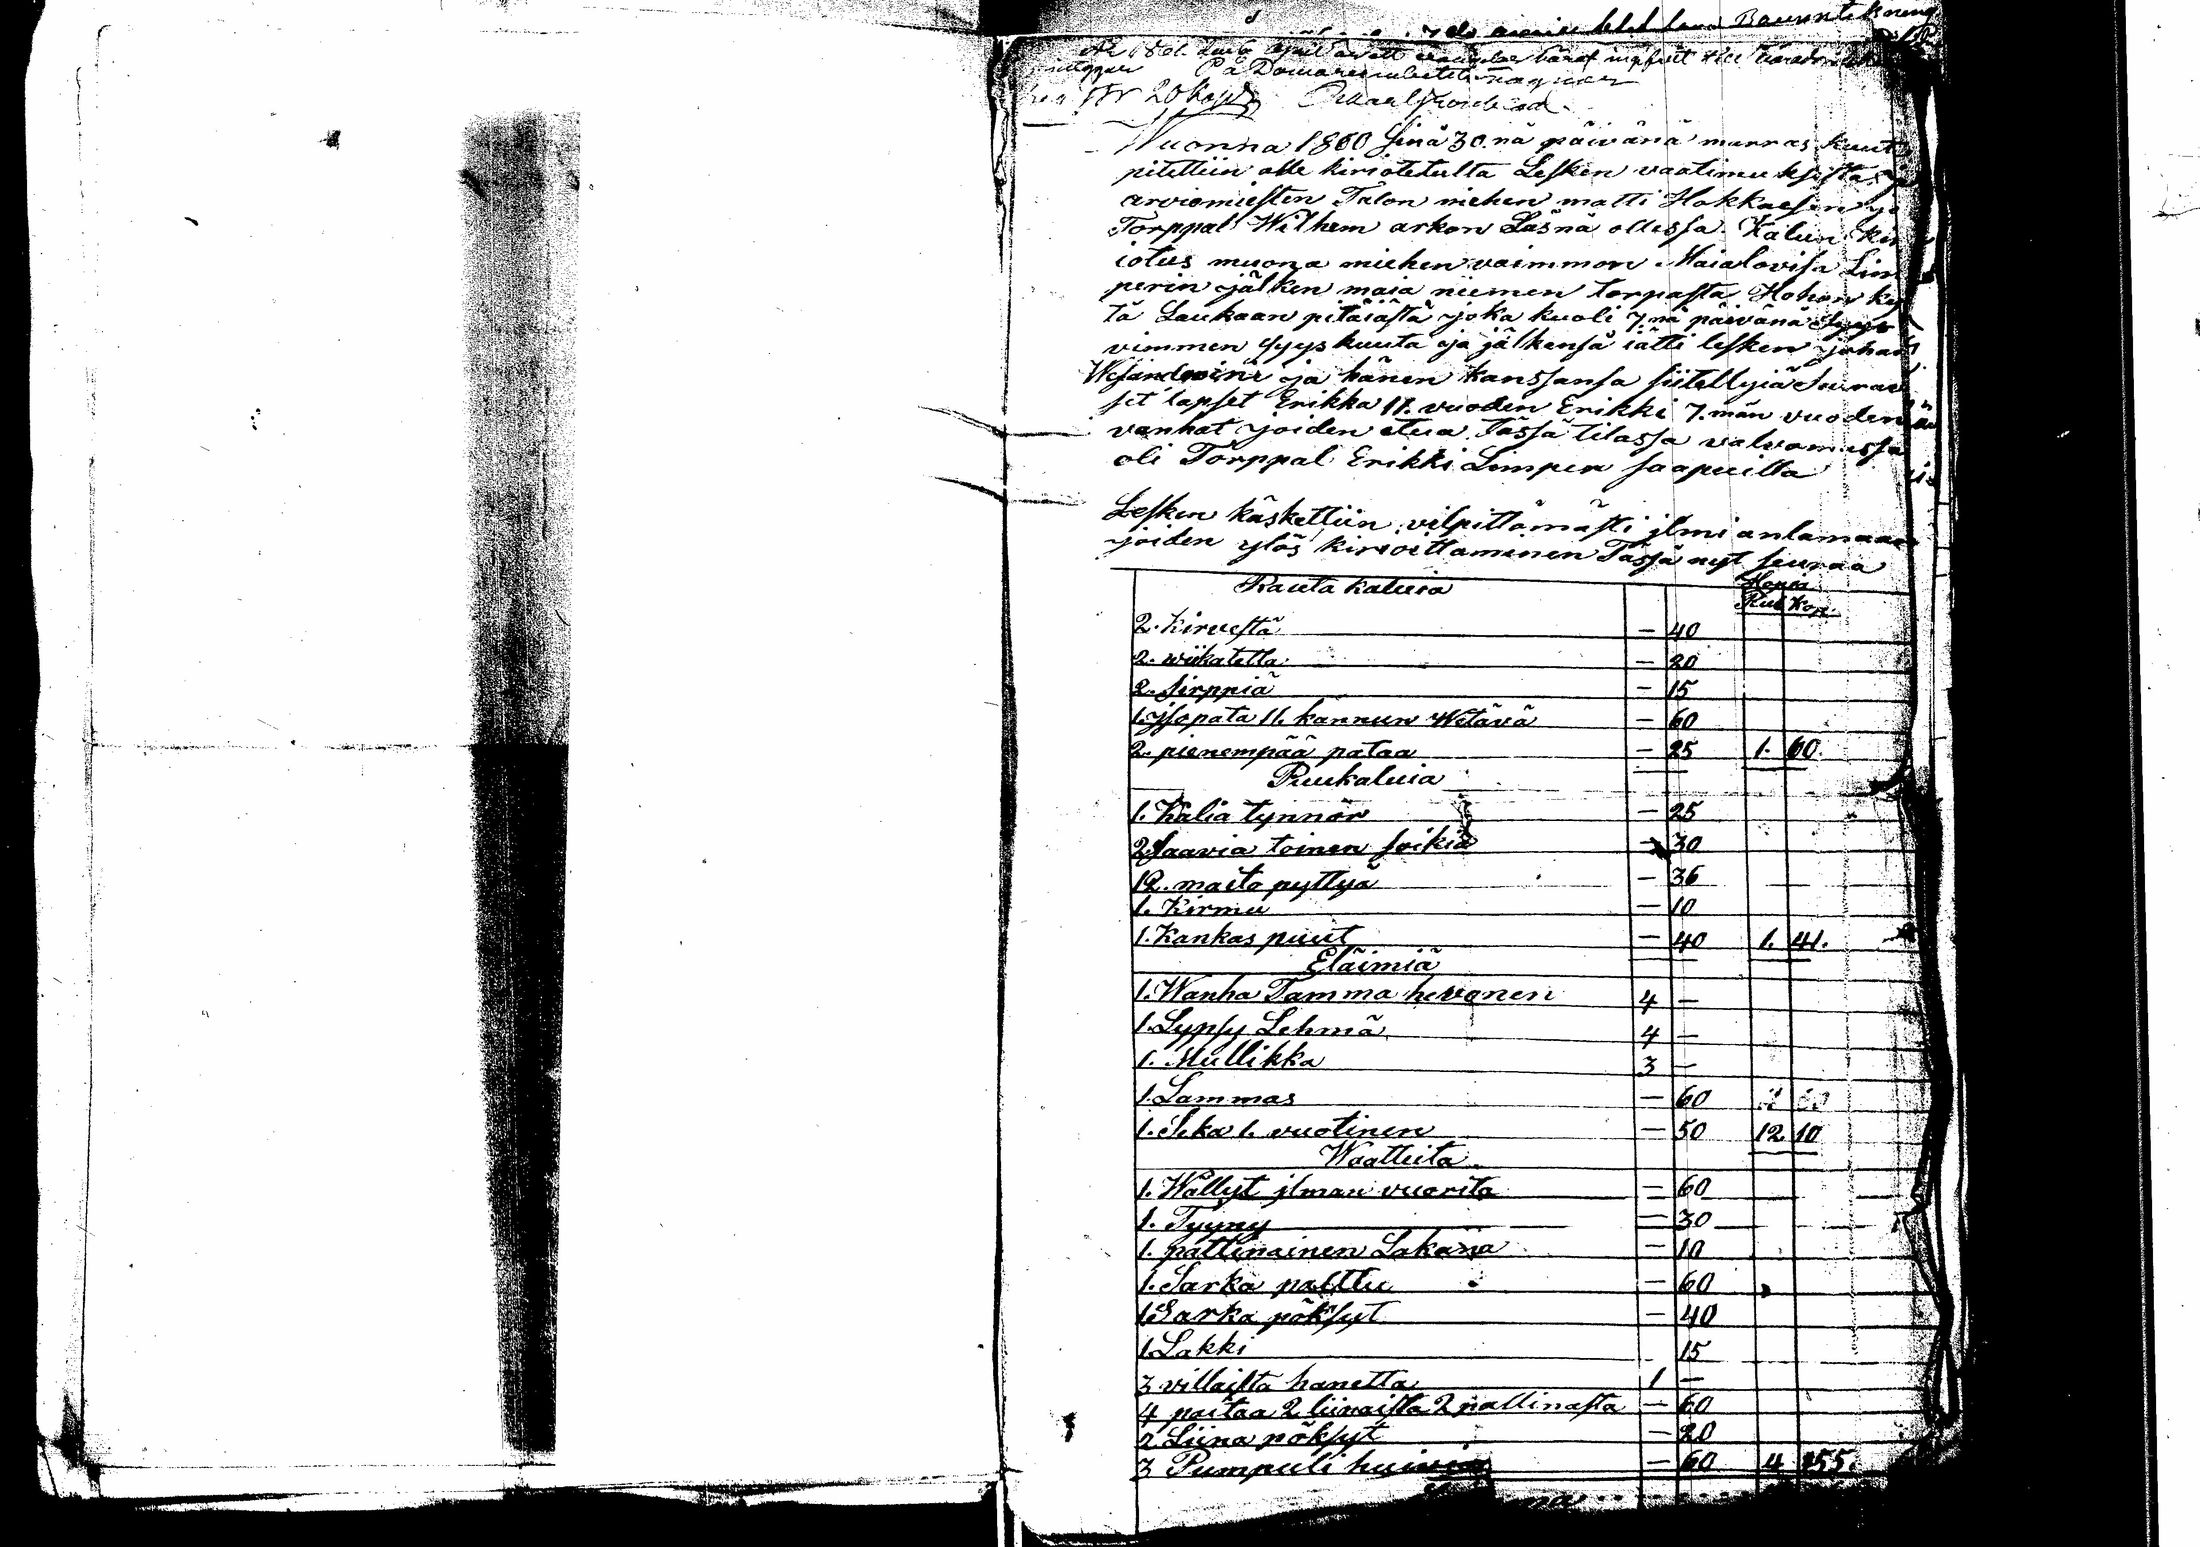 På Domareembetets vägnar
20 Kop
Vuonna 1860 Sinä 30.nä päivänä marras kuut
pitettiin alle kiriotetulta Lesken vaatimuksesta
arviomiesten Talon miehen matti Hakkaisen ja
Torppal Wilhem arkon Läsnä ollessa Kalun kir
iotus muona miehen vaimmon Maialovisa Lim
perin jälken maia niemen torpasta Hohon ky
tä Laukaan pitäiästä joka kuoli 7.nä päivänä Syys
vimmen syyskuuta ja jälkensä iätti lesken johan
ja hänen kanssansa siitellyiä seuraa
set lapset Erikka 11. vuoden Erikki 7.män vuoden
vanhat joiden etua Tässä tilassa valvomassa
oli Torppal Erikki Limper saapuilla
Lesken käskettiin vilpittömästi jlmi anlamaan
joiden ylös kirioittaminen Tässä nyt seuraa
Rauta kaluia Hopia
Rub Kop.
2. Kirvestä — 40
2. wiikatetta — 20
2. sirppiä — 15
1. jsopata 11. kannun Wetävä — 60
2. pienempää pataa — 25 1. 60.
Puukaluia
1. Kalia tynnör — 25
2 Saavia toinen soikia — 30
12. maito pyttyä — 36
1. Kirmu — 10
1. Kankas puut — 40 1. 41.
Eläimiä
1. Wanha Tamma hevonen 4 —
1. Lypsy Lehmä 4 —
1. Mullikka 3 —
1. Lammas — 60
1. Sika 1. vuotinen — 50 12 10
Waatteita
1. Wällyt jlman vuorita — 60
1. Tyyny — 30
1. pattinainen Lakana — 10
1. Sarka palttu — 60
1 Sarka pöksyt — 40
1. Lakki 15
3 villaista hametta 1 —
4 paitaa 2 liinaista 2 pallinasta — 60
2 Liina pöksyt — 20
3 Pumpuli huivia — 60 4 55.